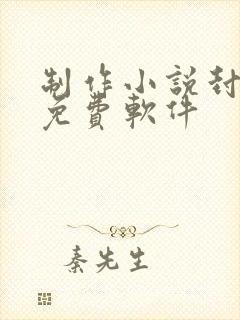 制作小説封
免費軟件
秦先生